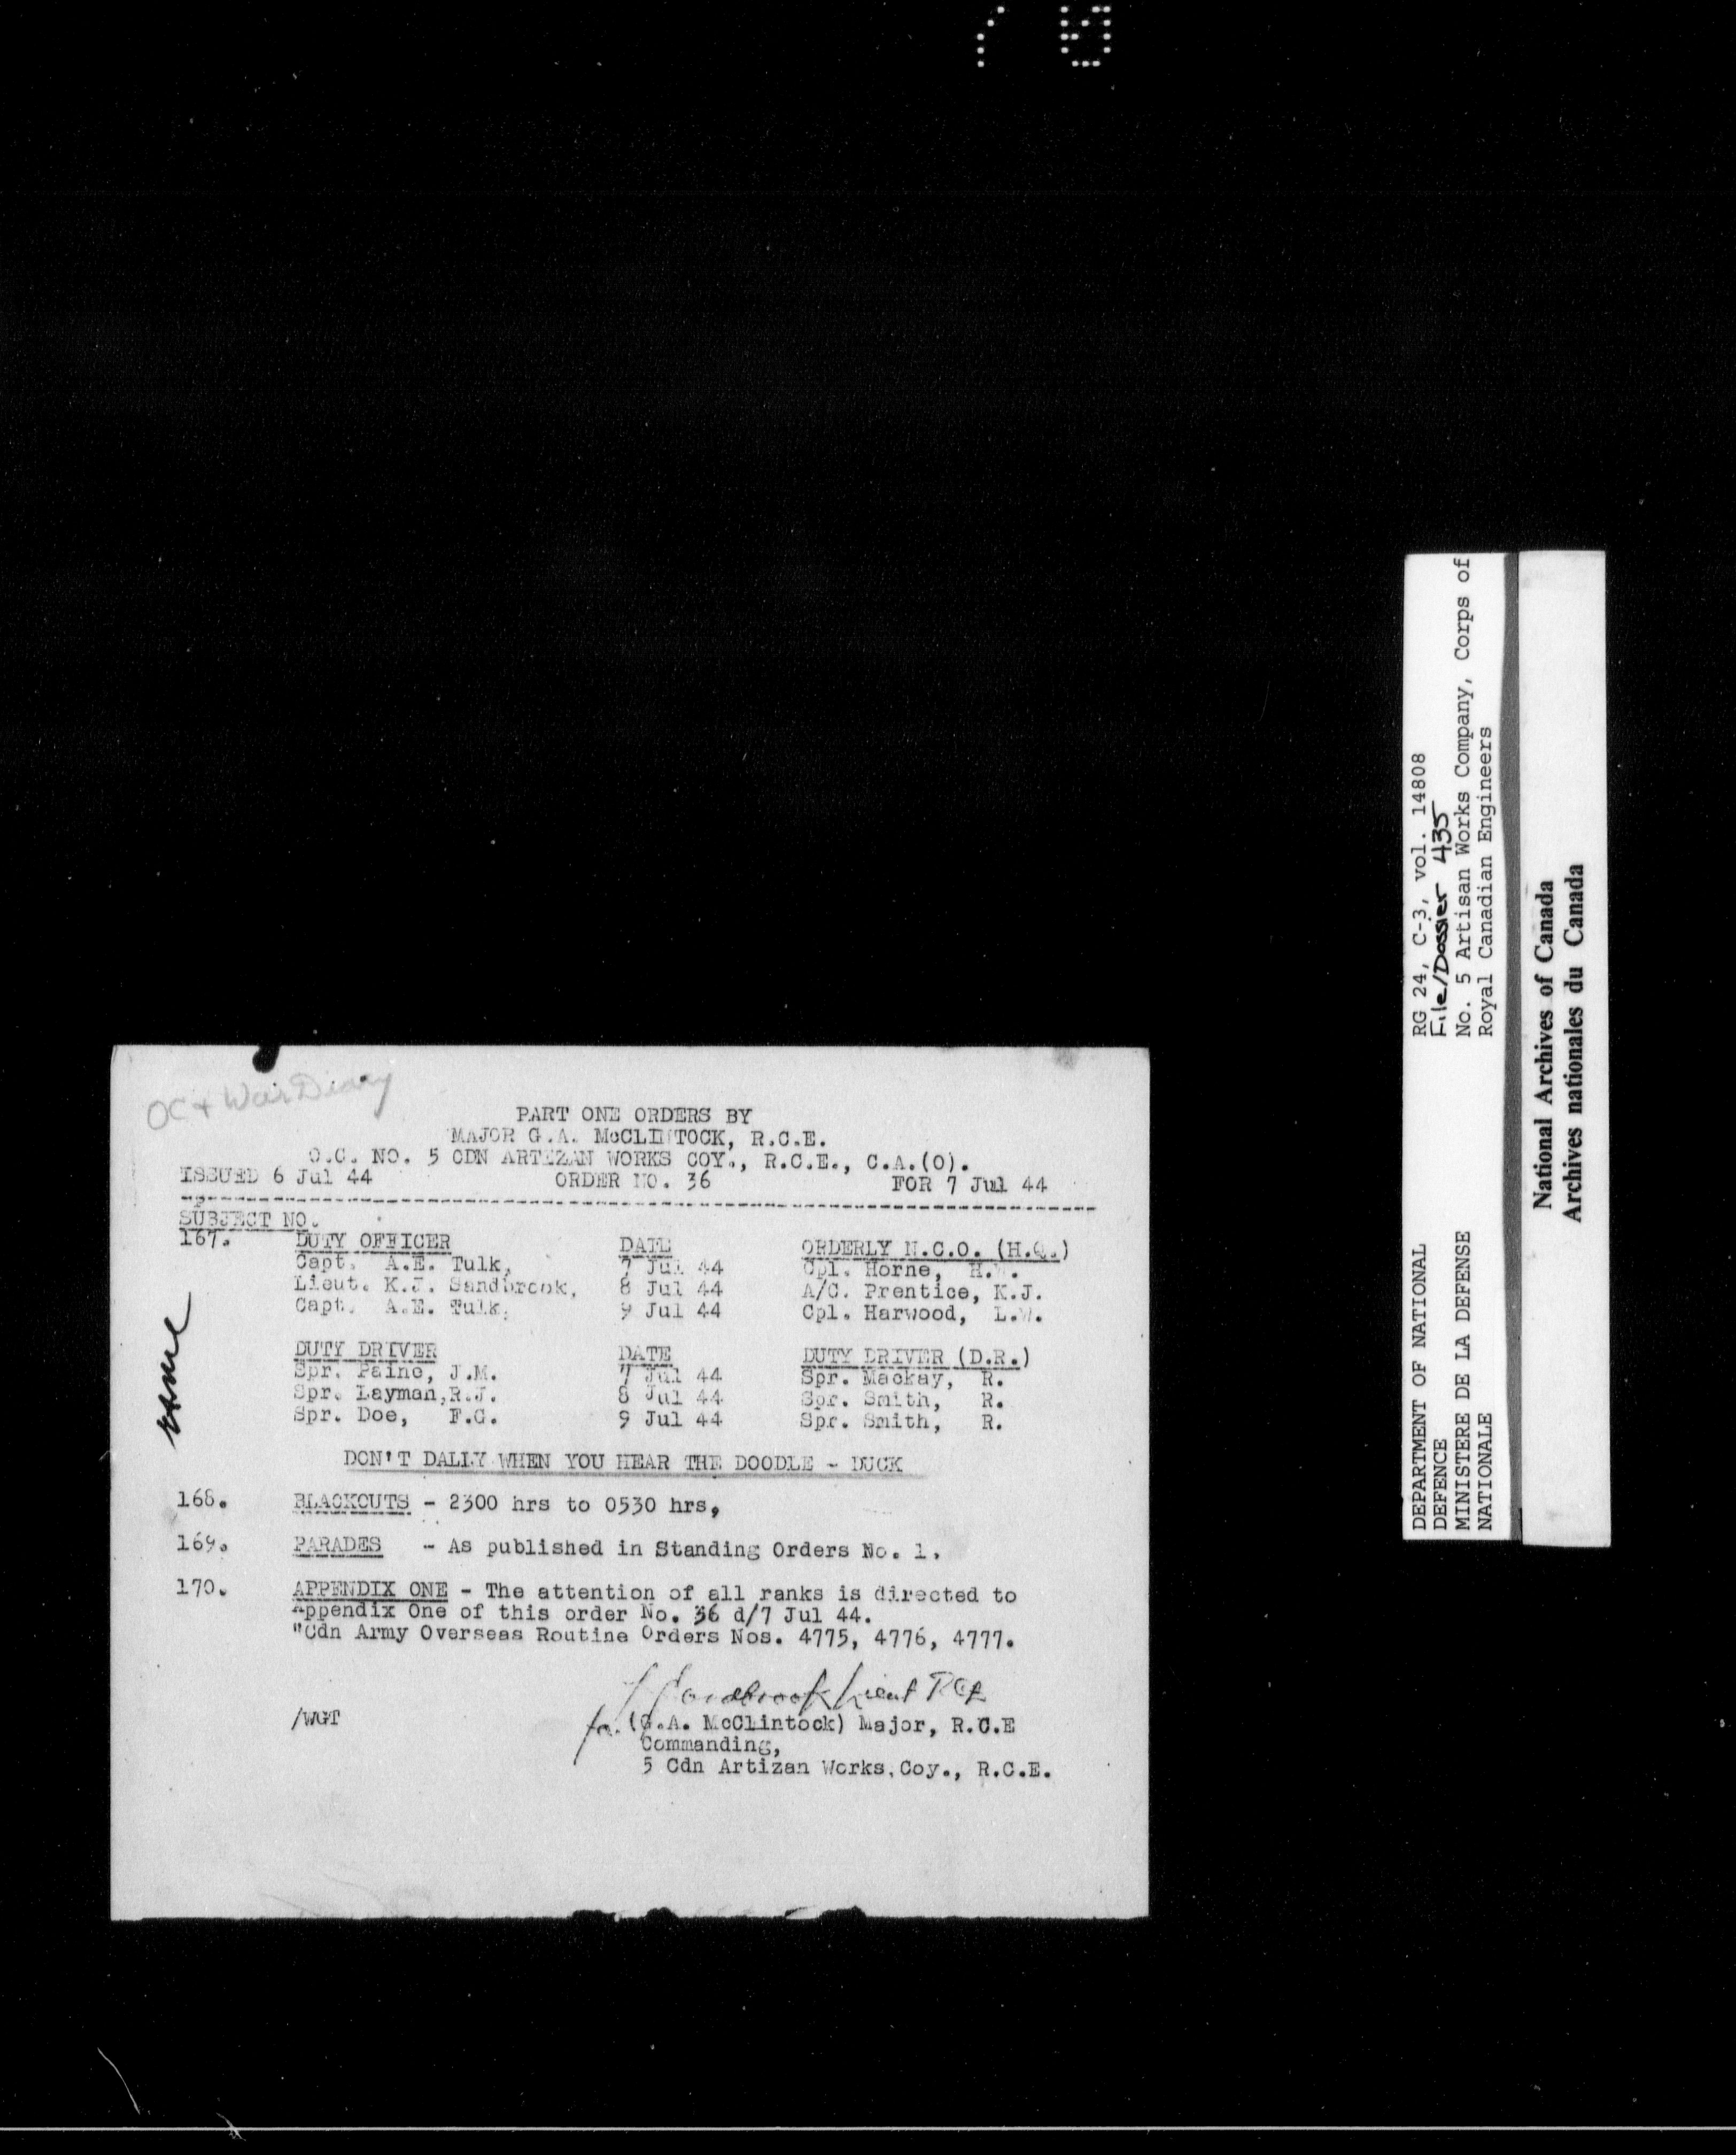 OC + War Diary
PART ONE ORDERS BY
MAJOR G.A. McCLINTOCK, R.C.E.
O.C. NO. 5 CDN ARTIZAN WORKS COY., R.C.E., C.A.(O).
ISSUED 6 Jul 44 ORDER NO. 36 FOR 7 Jul 44
SUBJECT NO.
167. DUTY OFFICER DATE ORDERLY N.C.O. (H.Q.)
Capt. A.E. Tulk, 7 Jul 44 Cpl. Horne, H.
Lieut. K.J. Sandbrook, 8 Jul 44 A/C. Prentice, K.J.
Capt. A.E. Tulk, 9 Jul 44 Cpl. Harwood, L.W.
DUTY DRIVER DATE DUTY DRIVER (D.R.)
Spr. Paine, J.M. 7 Jul 44 Spr. Mackay, R.
Spr. Layman, R.J. 8 Jul 44 Spr. Smith, R.
Spr. Doe, F.G. 9 Jul 44 Spr. Smith, R.
DON'T DALLY WHEN YOU HEAR THE DOODLE - DUCK
168. BLACKOUTS - 2300 hrs to 0530 hrs,
169. PARADES - As published in Standing Orders No. 1.
170. APPENDIX ONE - The attention of all ranks is directed to
Appendix One of this order No. 36 d/7 Jul 44.
"Cdn Army Overseas Routine Orders Nos. 4775, 4776, 4777.
Sandbrook Lieut RCE
/WGT for (G.A. McClintock) Major, R.C.E
Commanding,
5 Cdn Artizan Works, Coy., R.C.E.
DEPARTMENT OF NATIONAL
DEFENCE
MINISTERE DE LA DEFENSE
NATIONALE
RG 24, C-3, vol. 14808
File/Dossier 435
No. 5 Artisan Works Company, Corps of
Royal Canadian Engineers
National Archives of Canada
Archives nationales du Canada